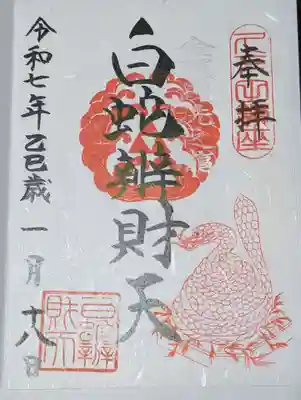 奉拝
白蛇辨財天
令和七年乙巳歳 一月十八日